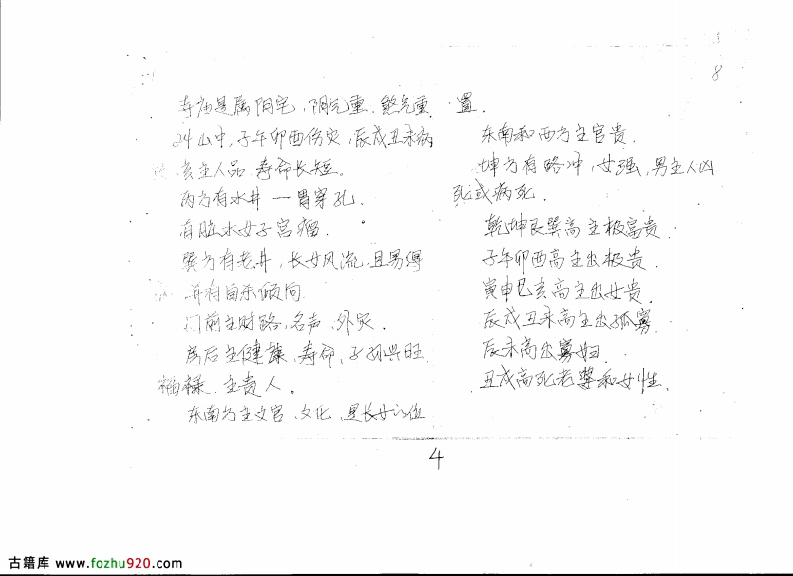 8
寺庙是属阴宅，阴气重、煞气重
24山中，子午卯酉伤灾，辰戌丑未病
亥主人品、寿命长短。
两方有水井一胃穿孔。
有脏水女子宫瘤。
巽方有老井，长女风流，且易得
并有自杀倾向
门前主财路、名声、外灾。
房后主健康、寿命、子孙兴旺
福禄、主贵人。
东南方主文官、文化、是长女的位
置．
东南和西方主官贵．
坤方有路冲，女强，男主人凶
死或病死．
乾坤艮巽高主极富贵．
子午卯酉高主出极贵．
寅申巳亥高主出女贵．
辰戌丑未高主出孤寡．
辰未高出寡妇．
丑戌高死老婆和女性．
4
古籍库 www.fozhu920.com